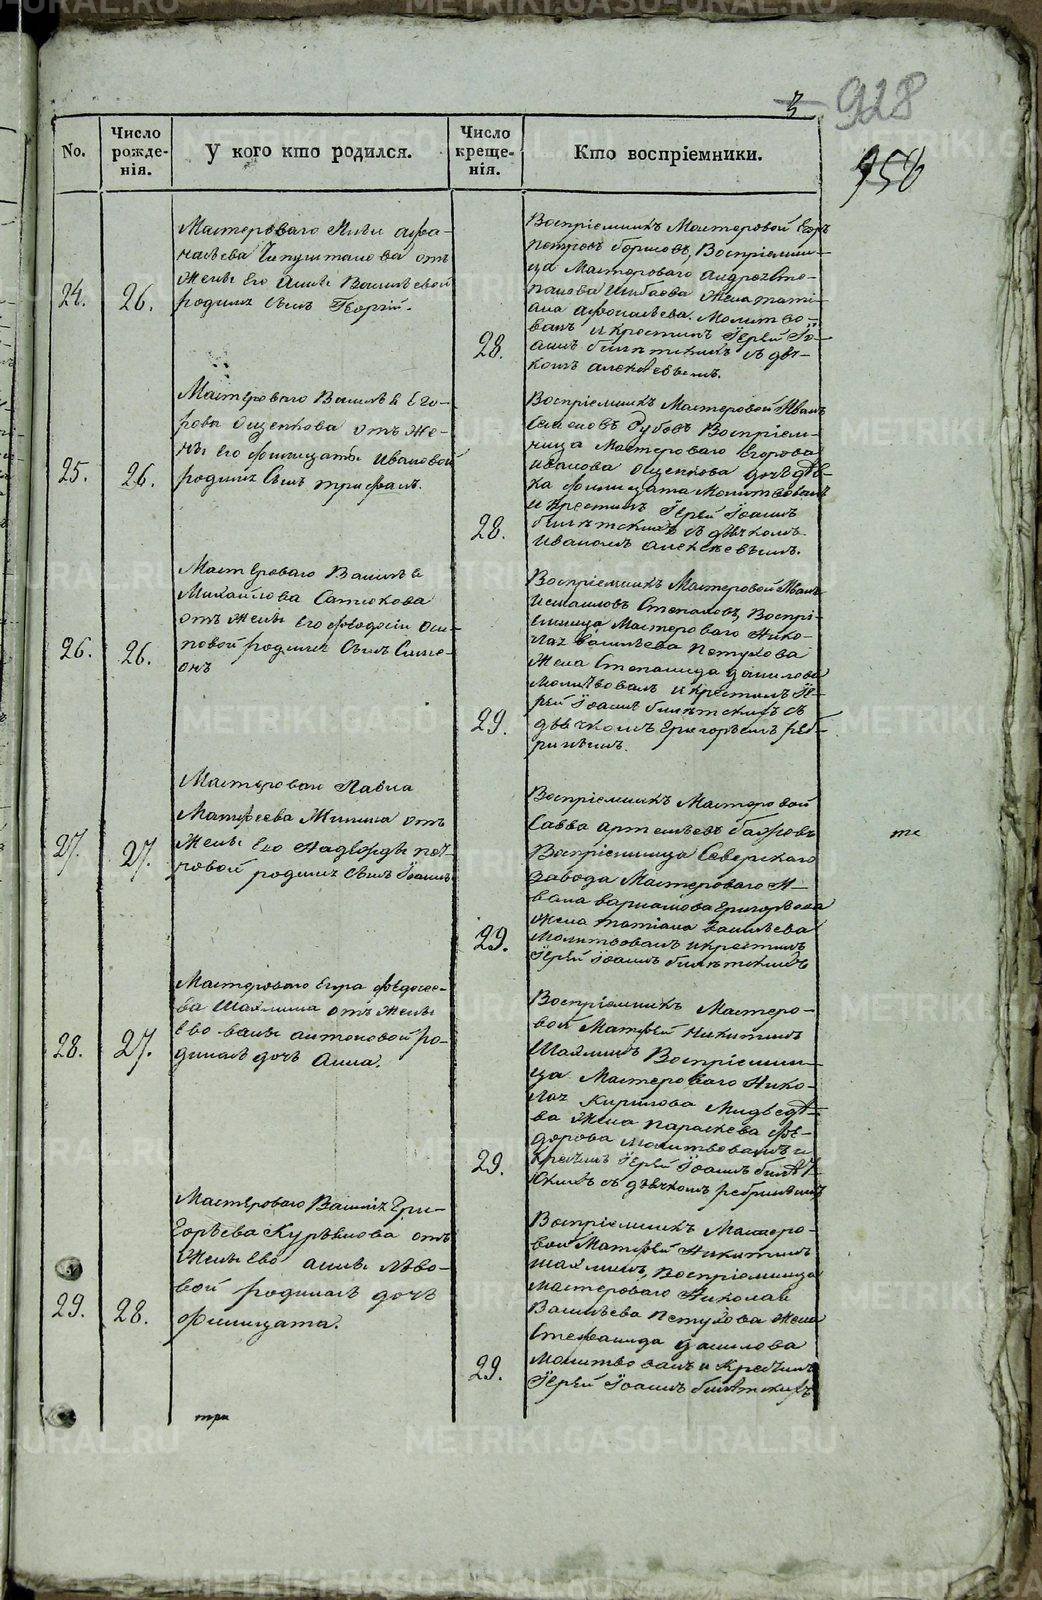 3
928
958
No.
Число рожде-нія.
У кого кто родился.
Число креще-нія.
Кто воспріемники.
24.
26.
Мастероваго
отъ
жены его Анны Васильевой
родился сынъ Георгій.
28.
Воспріемникъ Мастеровой Егоръ
Петровъ Борисовъ, Воспріемни-
ца Мастероваго Андрея Сте-
панова жена Тати-
ана Молитво-
валъ и крестилъ Іерей Іо-
аннъ съ дья-
комъ Алексѣевымъ.
25.
26.
Мастероваго Василья Его-
рова Ощепкова отъ же-
ны его Филицаты Ивановой
родился сынъ Трифанъ.
28.
Воспріемникъ Мастеровой Иванъ
Семеновъ Зубовъ Воспріем-
ница Мастероваго Егорова
Иванова Ощепкова дочь дѣв-
ка Филицата Молитвовалъ
и крестилъ Іерей Іоаннъ
съ дьячкомъ
Иваномъ Алексѣевымъ.
26.
26.
Мастероваго Василья
Михайлова
отъ жены его Феодосіи Оси-
повой родился сынъ Симе-
онъ
29.
Воспріемникъ Мастеровой Иванъ
Степановъ, Воспрі-
емница Мастероваго Нико-
лая Васильева Петухова
жена Степанида Данилова
Молитвовалъ и крестилъ Іе-
рей Іоаннъ съ
дьячкомъ Григорьемъ Реб-
ринымъ.
27.
27.
Мастероваго Павла
Матфеева отъ
жены его Надежды Пет-
ровой родился сынъ Іоаннъ
29.
Воспріемникъ Мастеровой
Савва Артемьевъ Бажовъ
Воспріемница Северскаго
завода Мастероваго И-
вана Варламова Григорьева
жена Татіана Васильева
Молитвовалъ и крестилъ
Іерей Іоаннъ
те
28.
27.
Мастероваго Егора Федосее-
ва Шахмина отъ жены
Ево Анто­новой ро-
дилась дочь Анна.
29.
Воспріемникъ Мастеро-
вой Матфей Никитинъ
Шахминъ Воспріемни-
ца Мастероваго Нико-
лая Кирилова Медведе-
ва жена Параскева Фе-
дорова Молитвовалъ и
Іерей Іоаннъ
съ дьячкомъ Ребринымъ
29.
28.
Мастероваго Василія Гри-
горьева отъ
жены ево Анны Льво-
вой родилась дочь
Филицата.
29.
Воспріемникъ Мастеро-
вой Матфей Никитинъ
Шахминъ, Воспріемница
Мастероваго Николая
Васильева Петухова жена
Стефанида Данилова
Молитвовалъ и
Іерей Іоаннъ
три
METRIKI.GASO-URAL.RU